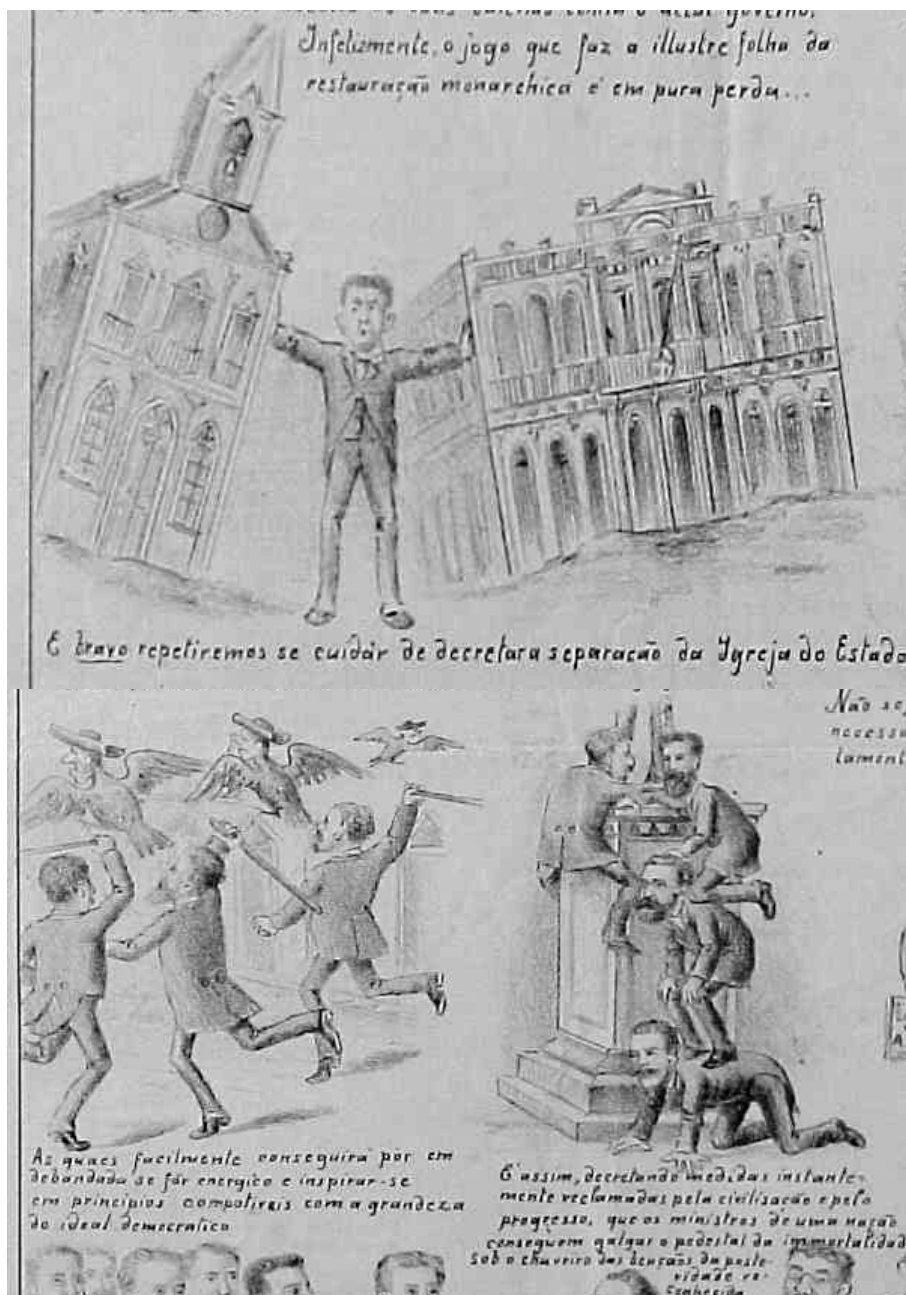 suas baterias contra o actual governo.
Infelizmente, o jogo que faz a illustre folha da
restauração monarchica é em pura perda...
E bravo repetiremos se cuidár de decretar a separação da Igreja do Estado
Não
necess
lament
As quaes facilmente conseguirá pôr em
debandada se fôr energico e inspirar-se
em principios compativeis com a grandeza
do ideal democratico
E' assim, decretando medidas instante-
mente reclamadas pela civilisação e pelo
progresso, que os ministros de uma nação
conseguem galgar o pedestal da immortalidad
sob o chuveiro das bençãos da poste-
ridade re-
conhecida